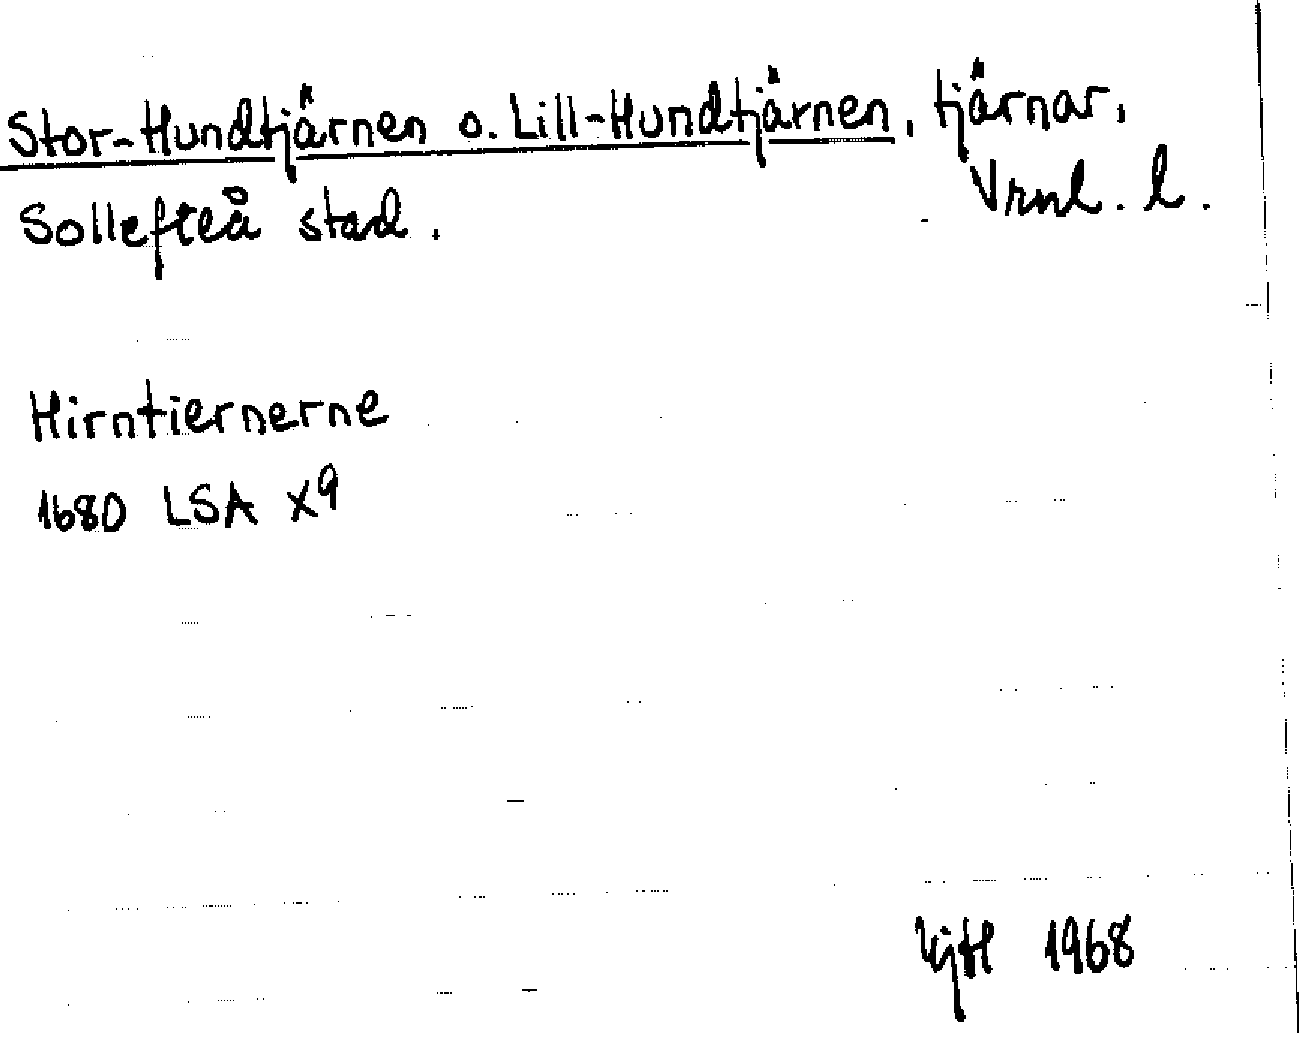 Stor-Hundtjärnen o. Lill-Hundtjärnen, tjärnar,
Sollefteå stad. Vrml. l.
Hirntiernerne
1680 LSA X9
1968